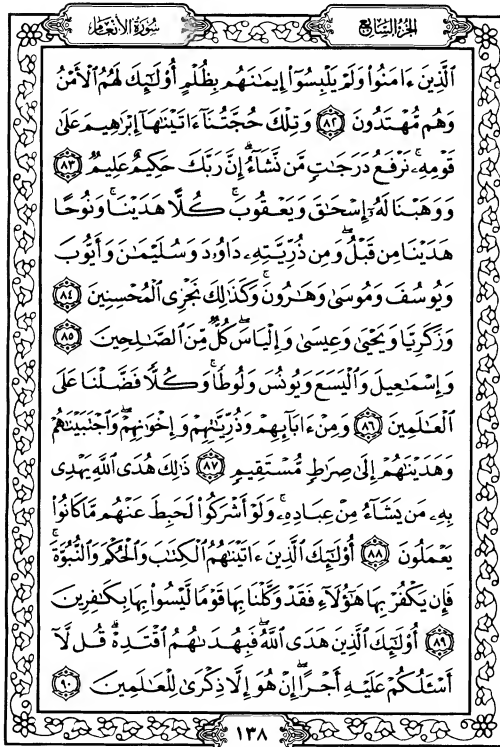 الجزء السابع
سورة الأنعام
ٱلَّذِينَ ءَامَنُوا۟ وَلَمْ يَلْبِسُوٓا۟ إِيمَٰنَهُم بِظُلْمٍ أُو۟لَٰٓئِكَ لَهُمُ ٱلْأَمْنُ
وَهُم مُّهْتَدُونَ ٨٢ وَتِلْكَ حُجَّتُنَآ ءَاتَيْنَٰهَآ إِبْرَٰهِيمَ عَلَىٰ
قَوْمِهِۦۚ نَرْفَعُ دَرَجَٰتٍ مَّن نَّشَآءُۗ إِنَّ رَبَّكَ حَكِيمٌ عَلِيمٌ ٨٣
وَوَهَبْنَا لَهُۥٓ إِسْحَٰقَ وَيَعْقُوبَۚ كُلًّا هَدَيْنَاۚ وَنُوحًا
هَدَيْنَا مِن قَبْلُۖ وَمِن ذُرِّيَّتِهِۦ دَاوُۥدَ وَسُلَيْمَٰنَ وَأَيُّوبَ
وَيُوسُفَ وَمُوسَىٰ وَهَٰرُونَۚ وَكَذَٰلِكَ نَجْزِى ٱلْمُحْسِنِينَ ٨٤
وَزَكَرِيَّا وَيَحْيَىٰ وَعِيسَىٰ وَإِلْيَاسَۖ كُلٌّ مِّنَ ٱلصَّٰلِحِينَ ٨٥
وَإِسْمَٰعِيلَ وَٱلْيَسَعَ وَيُونُسَ وَلُوطًاۚ وَكُلًّا فَضَّلْنَا عَلَى
ٱلْعَٰلَمِينَ ٨٦ وَمِنْ ءَابَآئِهِمْ وَذُرِّيَّٰتِهِمْ وَإِخْوَٰنِهِمْۖ وَٱجْتَبَيْنَٰهُمْ
وَهَدَيْنَٰهُمْ إِلَىٰ صِرَٰطٍ مُّسْتَقِيمٍ ٨٧ ذَٰلِكَ هُدَى ٱللَّهِ يَهْدِى
بِهِۦ مَن يَشَآءُ مِنْ عِبَادِهِۦۚ وَلَوْ أَشْرَكُوا۟ لَحَبِطَ عَنْهُم مَّا كَانُوا۟
يَعْمَلُونَ ٨٨ أُو۟لَٰٓئِكَ ٱلَّذِينَ ءَاتَيْنَٰهُمُ ٱلْكِتَٰبَ وَٱلْحُكْمَ وَٱلنُّبُوَّةَۚ
فَإِن يَكْفُرْ بِهَا هَٰٓؤُلَآءِ فَقَدْ وَكَّلْنَا بِهَا قَوْمًا لَّيْسُوا۟ بِهَا بِكَٰفِرِينَ
٨٩ أُو۟لَٰٓئِكَ ٱلَّذِينَ هَدَى ٱللَّهُۖ فَبِهُدَىٰهُمُ ٱقْتَدِهْۗ قُل لَّآ
أَسْـَٔلُكُمْ عَلَيْهِ أَجْرًاۖ إِنْ هُوَ إِلَّا ذِكْرَىٰ لِلْعَٰلَمِينَ ٩٠
١٣٨